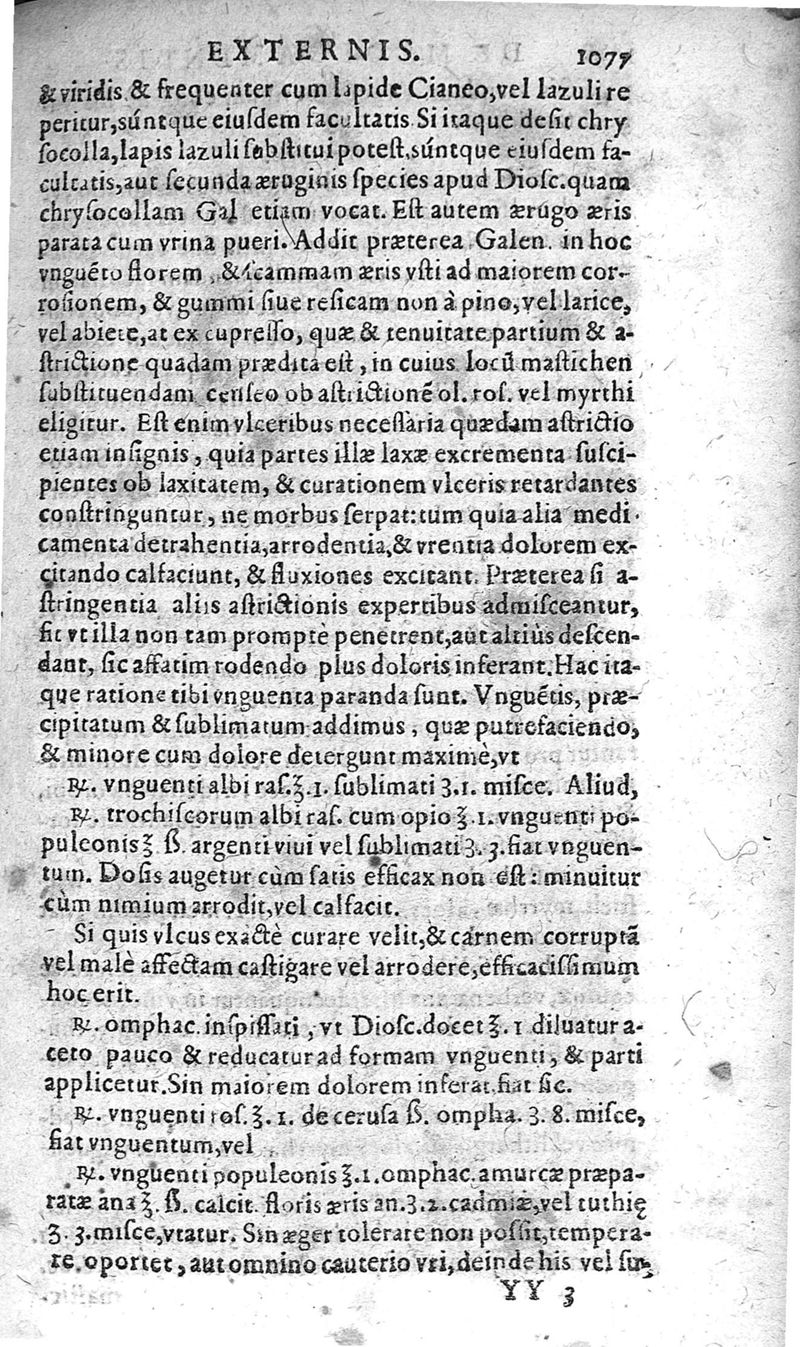 EXTERNIS. 1077
& viridis & frequenter cum lapide Cianeo, vel lazuli re
peritur, súntque eiuſdem facultatis Si itaque deſit chry
ſocolla, lapis lazuli ſubſtitui poteſt, súntque eiuſdem fa-
cultatis, aut ſecunda æruginis ſpecies apud Dioſc. quam
chryſocollam Gal etiam vocat. Eſt autem ærugo æris
parata cum vrina pueri. Addit præterea Galen. in hoc
vnguẽto florem, & ſcammam æris vſti ad maiorem cor-
roſionem, & gummi ſiue reſicam non à pino, vel larice,
vel abiete, at ex cupreſſo, quæ & tenuitate partium & a-
ſtrictione quadam prædita eſt, in cuius locũ maſtichen
ſubſtituendam cenſeo ob aſtrictionẽ ol. roſ. vel myrthi
eligitur. Eſt enim vlceribus neceſſaria quædam aſtrictio
etiam inſignis, quia partes illæ laxæ excrementa ſuſci-
pientes ob laxitatem, & curationem vlceris retardantes
conſtringuntur, ne morbus ſerpat: tum quia alia medi-
camenta detrahentia, arrodentia, & vrentia dolorem ex-
citando calfaciunt, & fluxiones excitant. Præterea ſi a-
ſtringentia aliis aſtrictionis expertibus admiſceantur,
fit vt illa non tam promptè penetrent, aut altiùs deſcen-
dant, ſic affatim rodendo plus doloris inferant. Hac ita-
que ratione tibi vnguenta paranda ſunt. Vnguẽtis, præ-
cipitatum & ſublimatum addimus, quæ putrefaciendo,
& minore cum dolore detergunt maximè, vt
℞. vnguenti albi raſ. ℥. 1. ſublimati ʒ. 1. miſce. Aliud,
℞. trochiſcorum albi raſ. cum opio ℥. 1. vnguenti po-
puleonis ℥ ß. argenti viui vel ſublimati ʒ. 3. fiat vnguen-
tum. Doſis augetur cùm ſatis efficax non eſt: minuitur
cùm nimium arrodit, vel calfacit.
Si quis vlcus exactè curare velit, & carnem corruptã
vel malè affectam caſtigare vel arrodere, efficaciſſimum
hoc erit.
℞. omphac. inſpiſſati, vt Dioſc. docet ℥. 1 diluatur a-
ceto pauco & reducatur ad formam vnguenti, & parti
applicetur. Sin maiorem dolorem inferat, fiat ſic.
℞. vnguenti roſ. ℥. 1. de ceruſa ß. ompha. ʒ. 8. miſce,
fiat vnguentum, vel
℞. vnguenti populeonis ℥. 1. omphac. amurcæ præpa-
ratæ ana ℥. ß. calcit. floris æris an. ʒ. 2. cadmiæ, vel tuthię
ʒ. 3. miſce, vtatur. Sin æger tolerare non poſſit, tempera-
re oportet, aut omnino cauterio vti, deinde his vel ſu-
YY 3